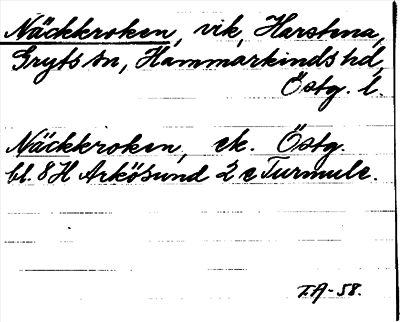 Näckkroken, vik, Harstena,
Gryts sn, Hammarkinds hd,
Östg. l.
Näckkroken, ek. Östg.
bl. 8H Arkösund 2 c Turmulc.
T.A-58.